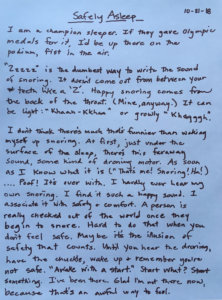 Safely Asleep
10-21-18
I am a champion sleeper. If they gave Olympic
medals for it, I'd be up there on the
podium, fist in the air.
"Zzzzz" is the dumbest way to write the sound
of snoring. It doesn't come out from between your
teeth like a 'Z'. Happy snoring comes from
the back of the throat. (Mine, anyway.) It can
be light: "Khaah-Kkhan" or growly "Khgggh".
I don't think there's much that's funnier than waking
myself up snoring. At first, just under the
surface of the sleep, there's this faraway
sound, some kind of droning motor. As soon
as I know what it is ("That's me! Snoring! Ha!)
... Poof! It's over with. I hardly ever hear my
own snoring. I find it such a happy sound. I
associate it with safety + comfort. A person is
really checked out of the world once they
begin to snore. Hard to do that when you
don't feel safe. Maybe it's the illusion of
safety that counts. Until you hear the droning,
have the chuckle, wake up + remember you're
not safe. "Awake with a start." Start what? Start
something. I've been there. Glad I'm not there now,
because that's an awful way to feel.